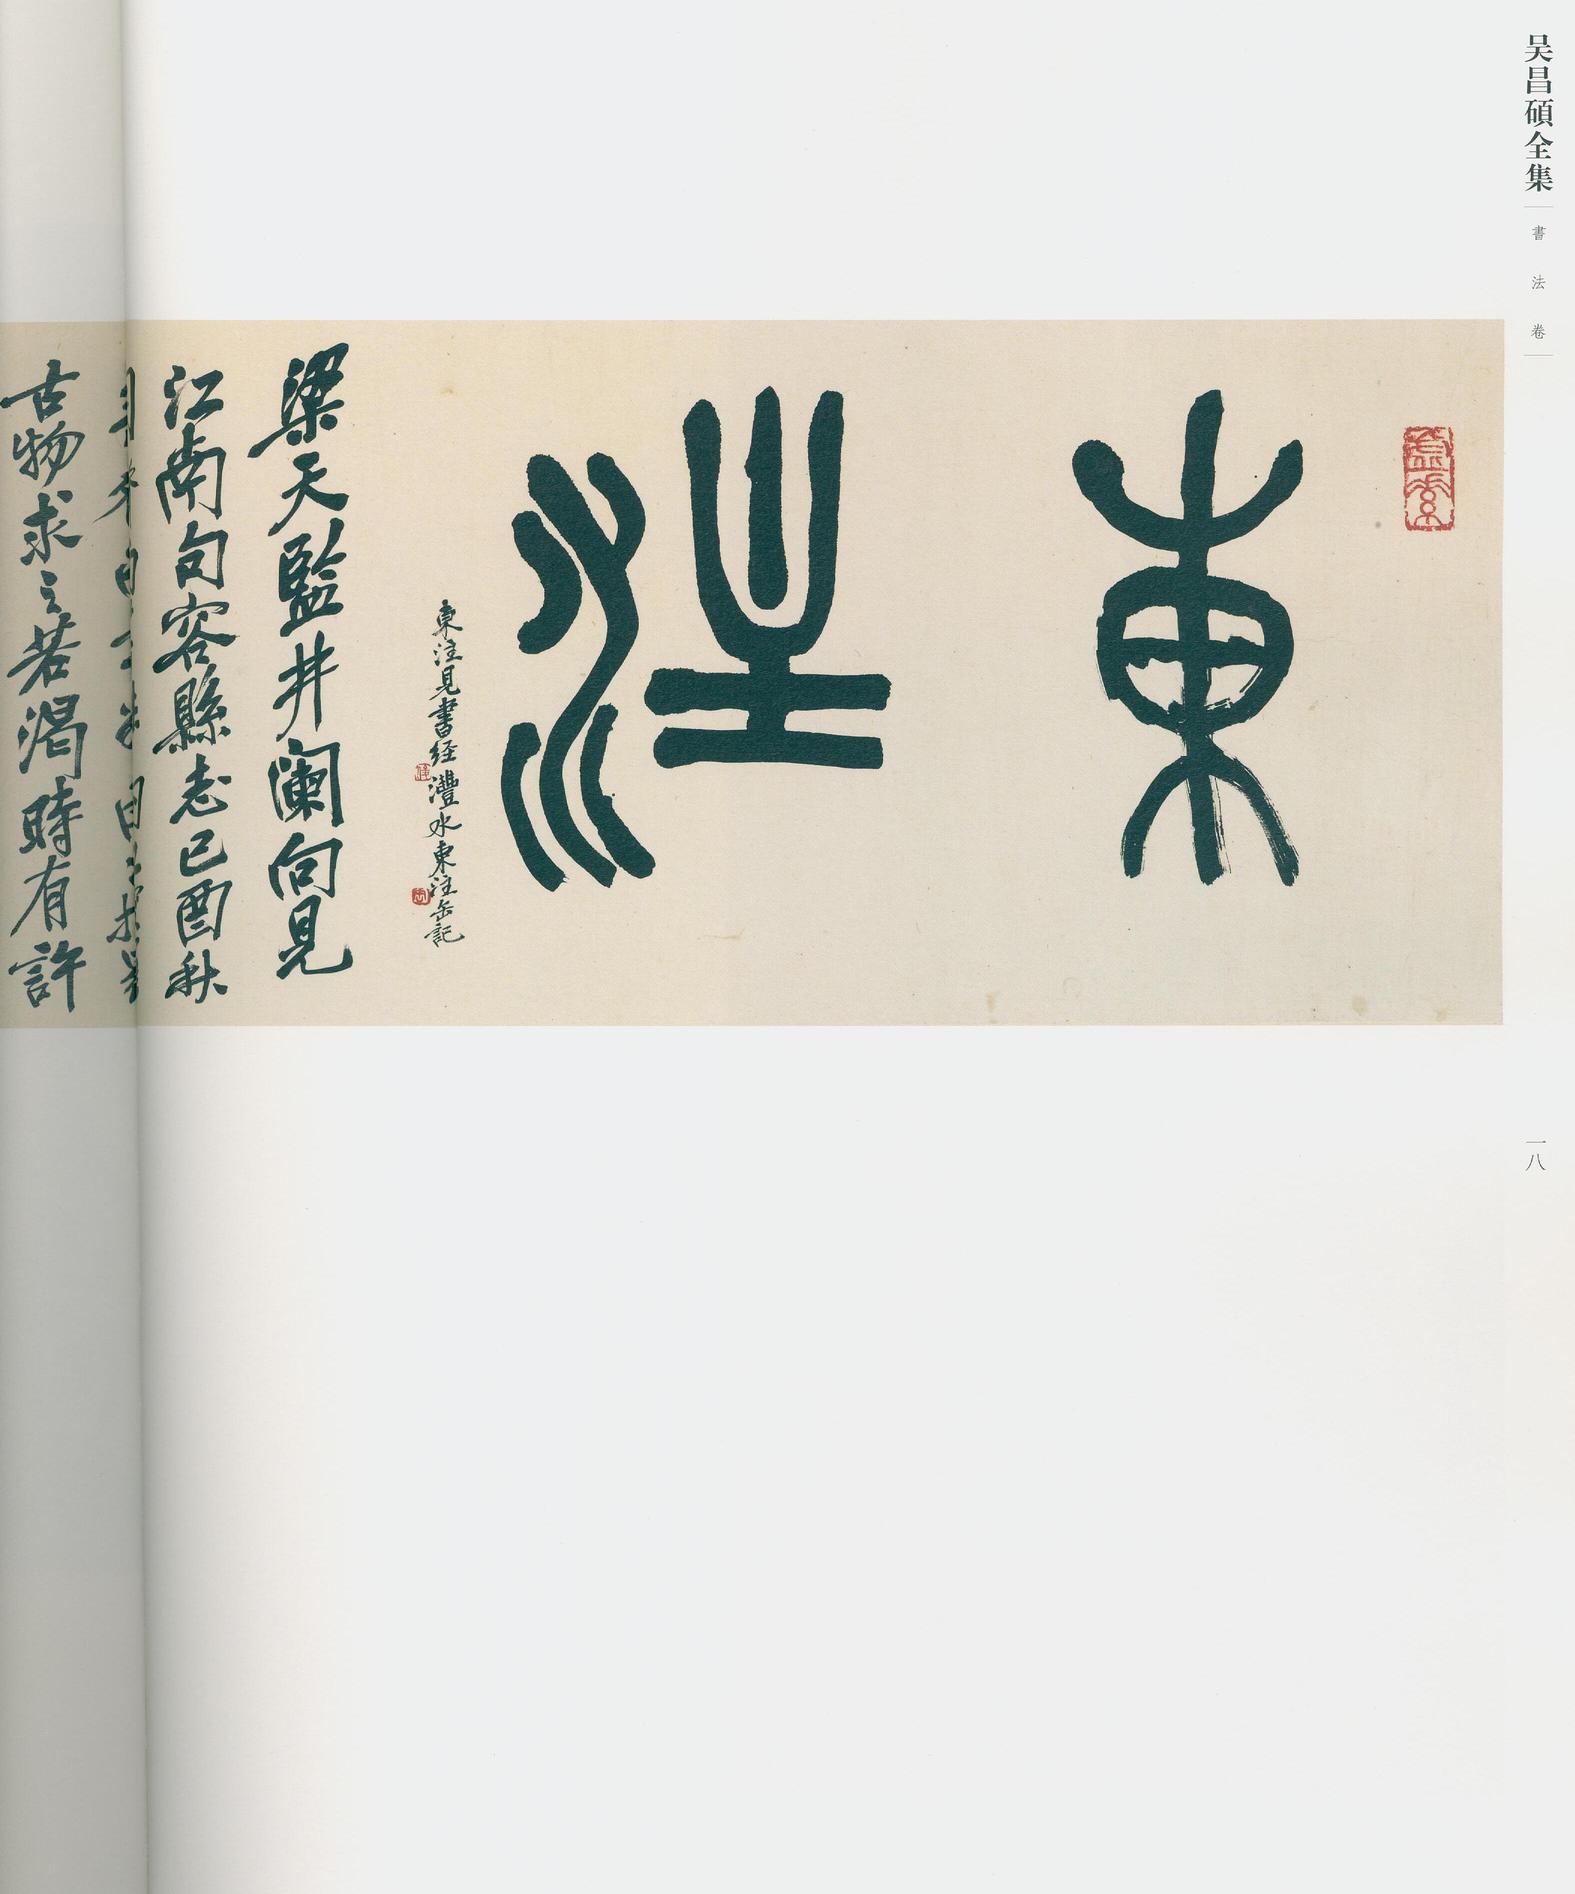 吴昌碩全集
書法卷
一八
東注
東注見書經灃水東注缶記
梁天監井闌向見
江南句容縣志已酉秋
古物求之若渴時有許